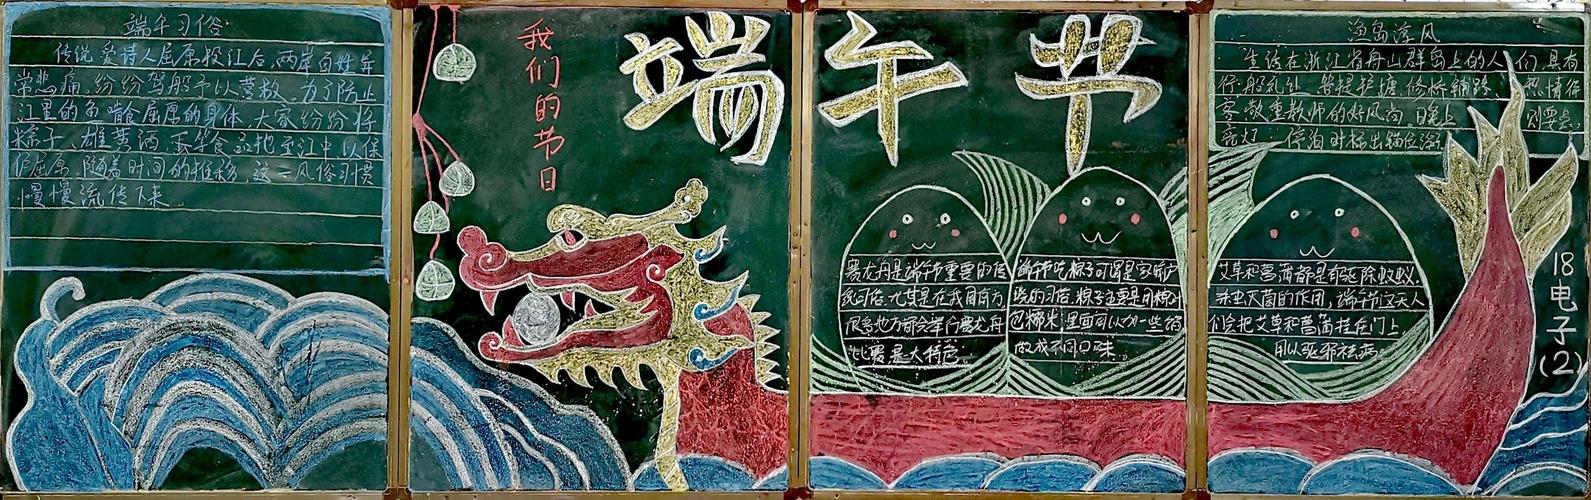 端午习俗
传说爱诗人屈原投江后,两岸百姓异
常悲痛,纷纷驾船予以营救,为了防止
江里的鱼啃食屈原的身体,大家纷纷将
粽子、雄黄酒、等食品抛至江中以保
护屈原,随着时间的推移,这一风俗习惯
慢慢流传下来。
我们的节日
端午节
赛龙舟是端午节重要的传
统习俗,尤其是在我国南方
很多地方都会举行赛龙舟
比赛是大特色。
端午节吃粽子可谓是家喻户
晓的习俗,粽子主要是用粽叶
包糯米,里面可以加一些馅
做成不同口味。
艾草和菖蒲都是有驱除蚊蚁、
杀虫灭菌的作用,端午节这天人
们会把艾草和菖蒲挂在门上,
用以驱邪祛病。
渔岛清风
生活在浙江省舟山群岛上的人们,具有
修桥铺路、热情待
客、敬重教师的好风尚,
停泊时标出锚位
18电子(2)